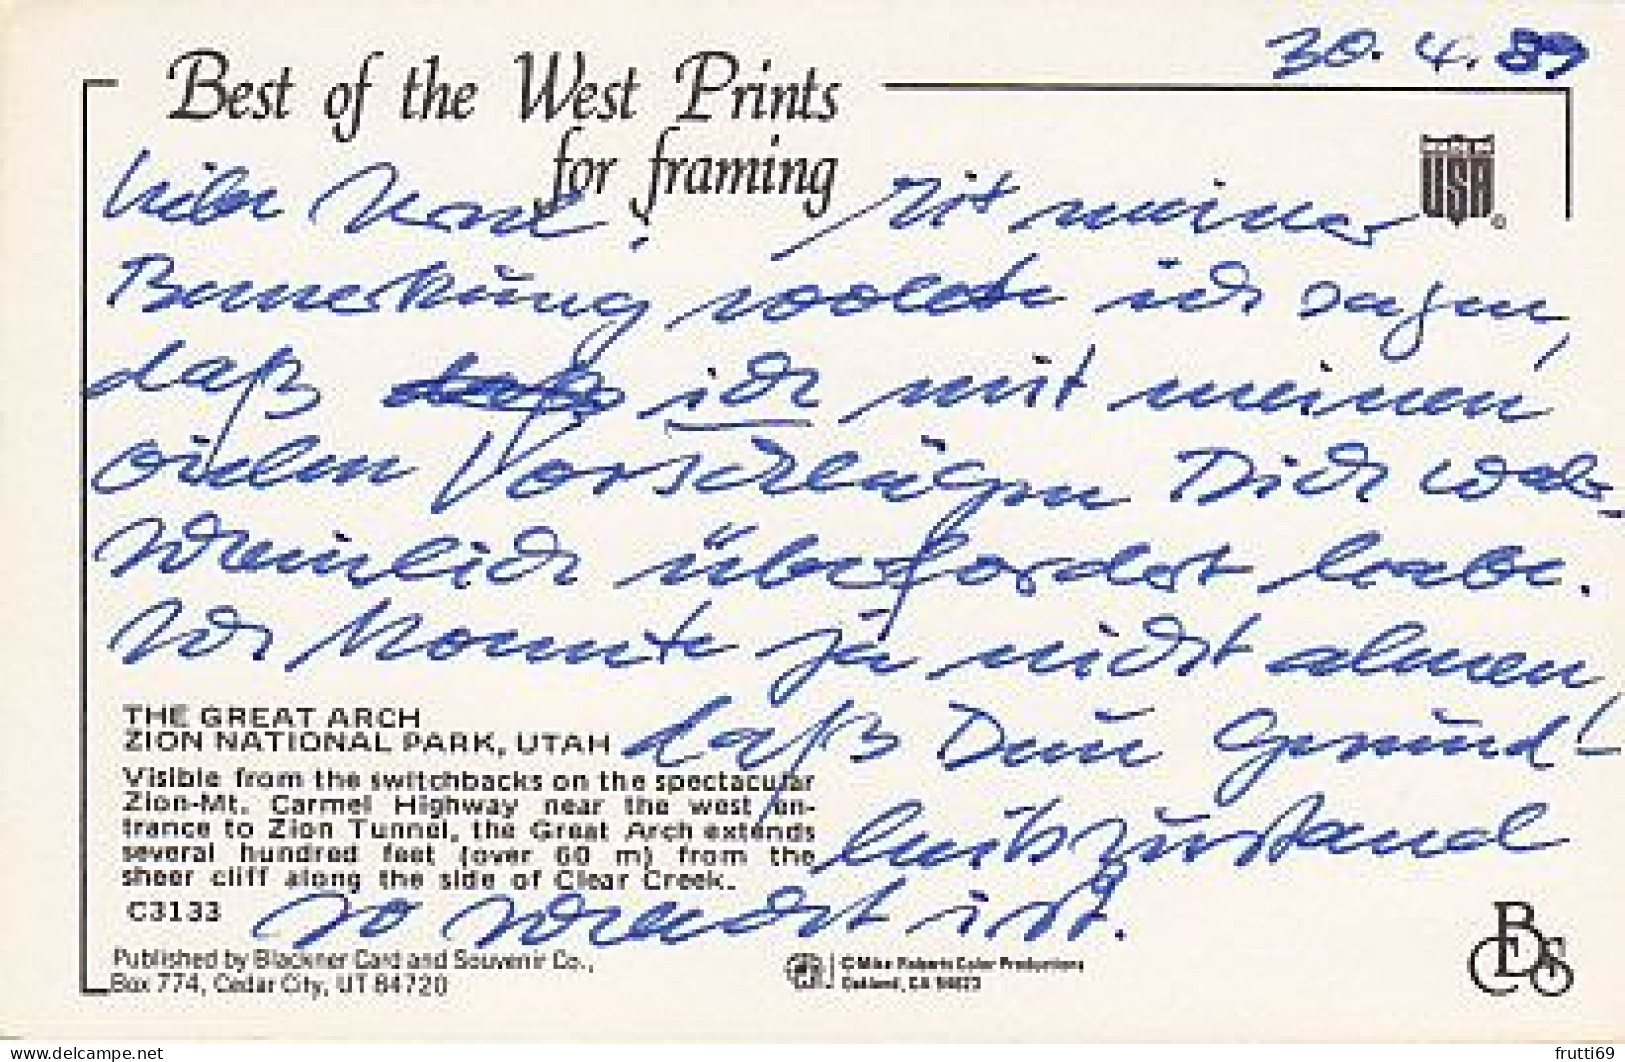 30. 4. 89
Best of the West Prints
for framing
USA
®
Lieber! Mit meiner
Bemerkung wollte ich sagen,
daß ich mit meinen
vielen Vorschlägen Dich wahr-
scheinlich überfordert habe.
Ich konnte ja nicht ahnen,
daß Dein Gesund-
heitszustand
so schlecht ist.
THE GREAT ARCH
ZION NATIONAL PARK, UTAH
Visible from the switchbacks on the spectacular
Zion-Mt. Carmel Highway near the west en-
trance to Zion Tunnel, the Great Arch extends
several hundred feet (over 60 m) from the
sheer cliff along the side of Clear Creek.
C3133
Published by Blackner Card and Souvenir Co.,
Box 774, Cedar City, UT 84720
© Mike Roberts Color Productions
Oakland, CA 94623
www.delcampe.net
frutti69